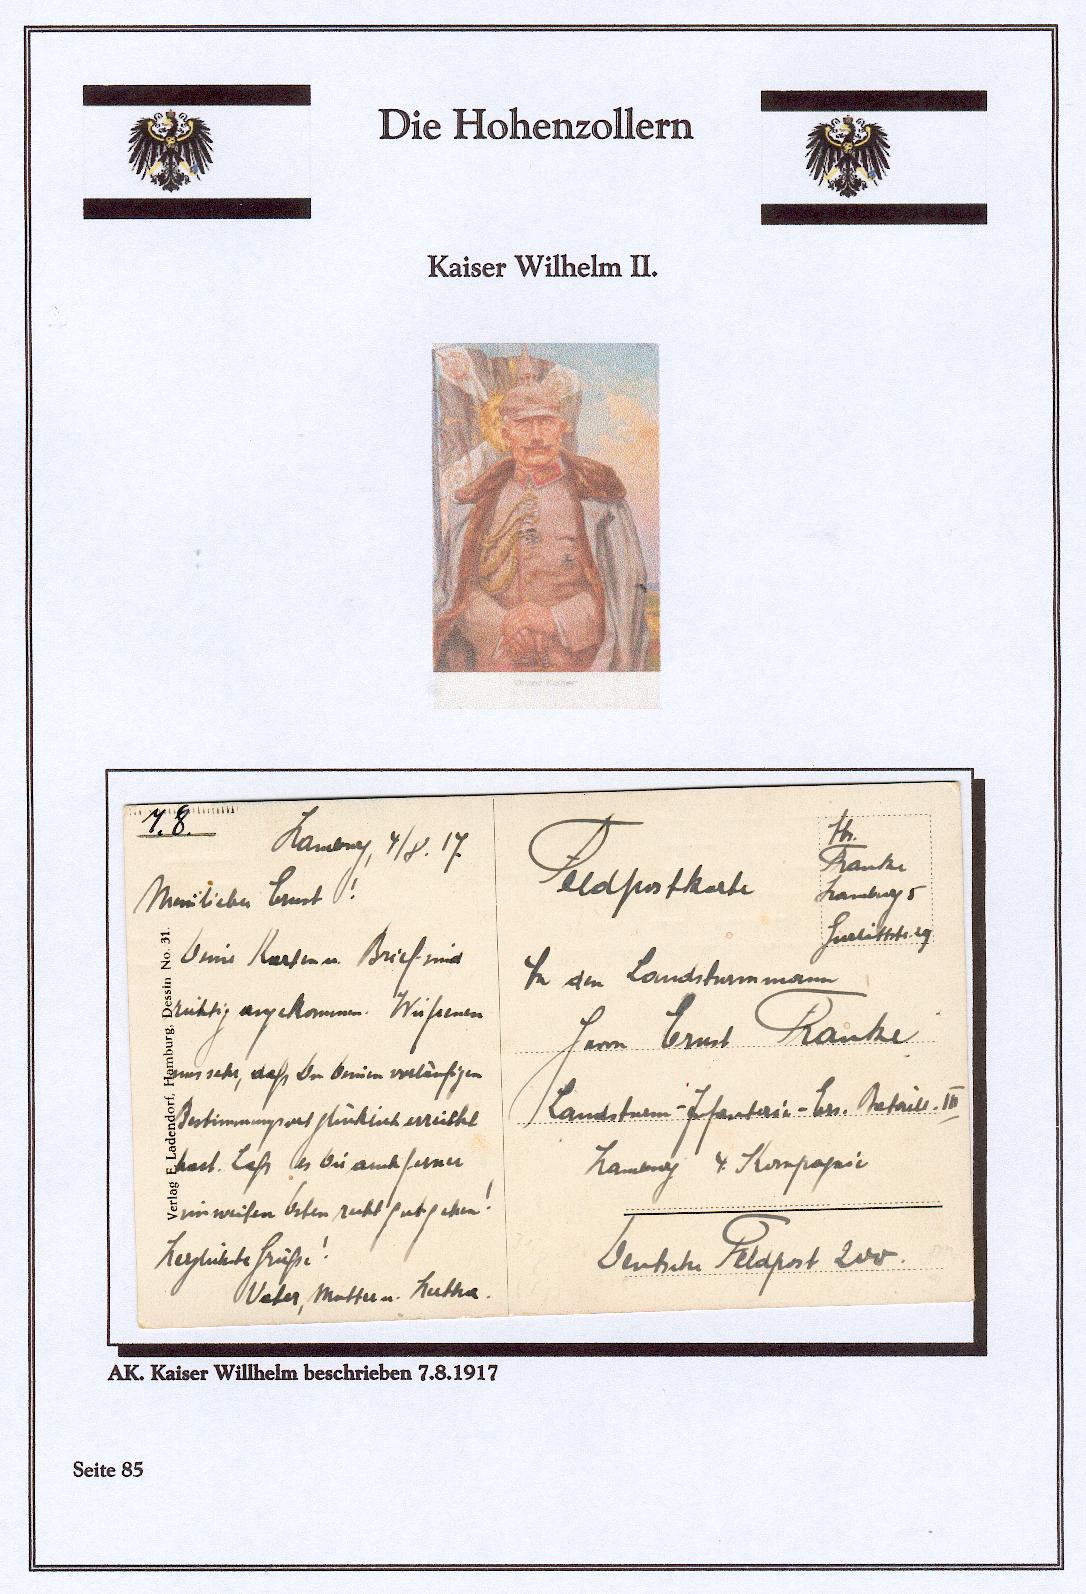 Die Hohenzollern
Kaiser Wilhelm II.
Unser Kaiser
7.8.
Hamburg, 4/8. 17
Mein lieber Ernst!
Deine Karten u. Brief sind
richtig angekommen. Wir freuen
uns sehr, daß Du Deinen vorläufigen
Bestimmungsort glücklich erreicht
hast. Laß es Dir auch ferner
im weißen Osten recht gut gehen!
Herzlichste Grüße!
Vater, Mutter u. Hertha.
Verlag E. Ladendorf, Hamburg. Dessin No. 31
Feldpostkarte
Franke
Hamburg 5
An den Landsturmmann
Herrn Ernst Franke
Landsturm-Infanterie-Ers. Bataill. III
Hamburg 4. Kompagnie
Deutsche Feldpost 200.
AK. Kaiser Willhelm beschrieben 7.8.1917
Seite 85